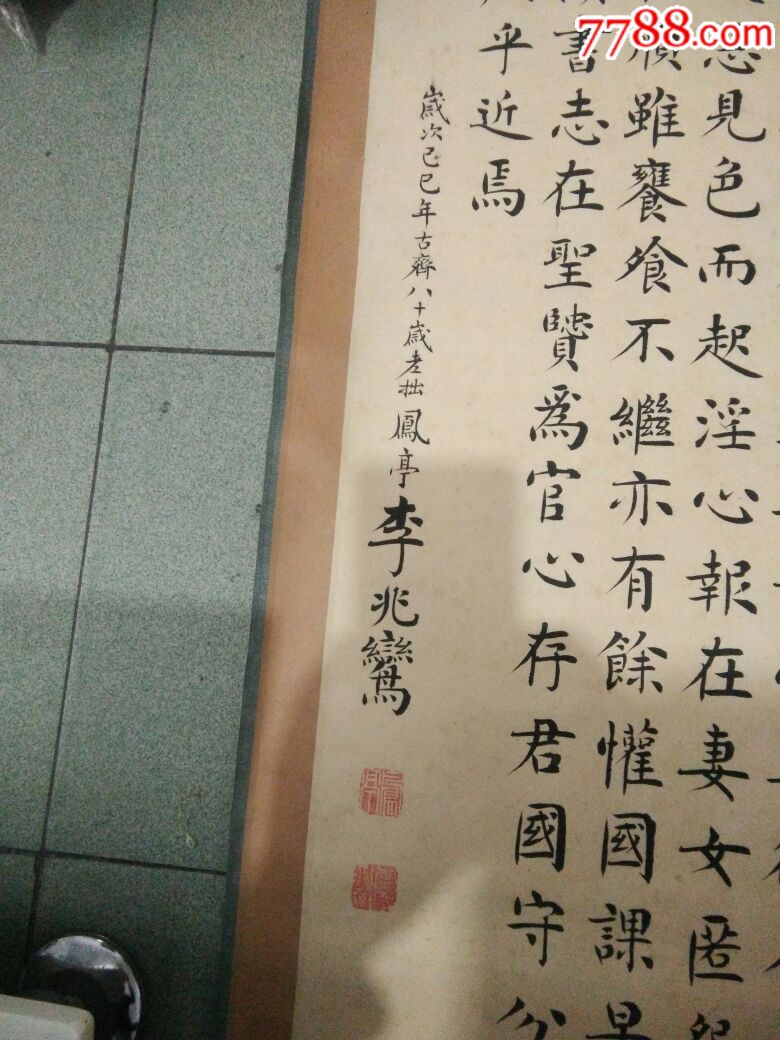 7788.com
見色而起淫心報在妻女匿
雖饔飧不繼亦有餘懽國課
書志在聖賢為官心存君國守分
乎近焉
歲次己巳年古齊八十歲老拙鳳亭李兆鸞